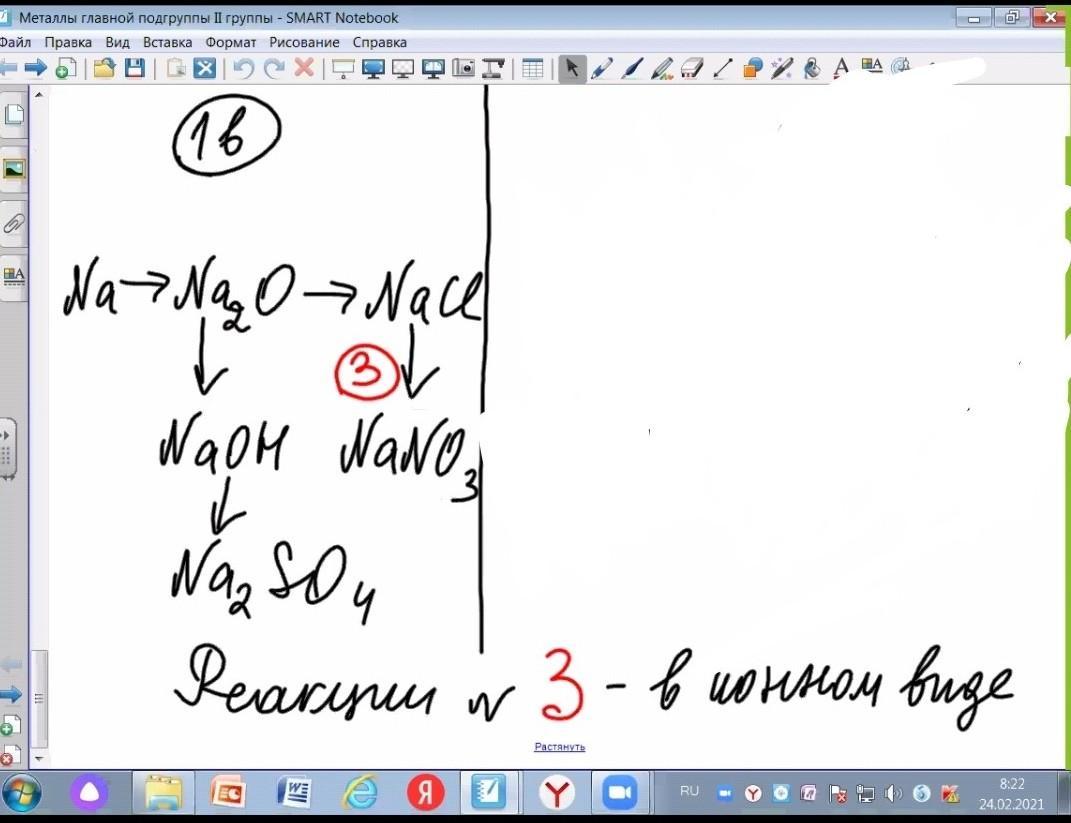 Металлы главной подгруппы II группы - SMART Notebook
Файл Правка Вид Вставка Формат Рисование Справка
1в
Na→Na₂O→NaCl
↓ ③ ↓
NaOH NaNO₃
↓
Na₂SO₄
Реакции № 3 - в ионном виде
Растянуть
RU 8:22
24.02.2021